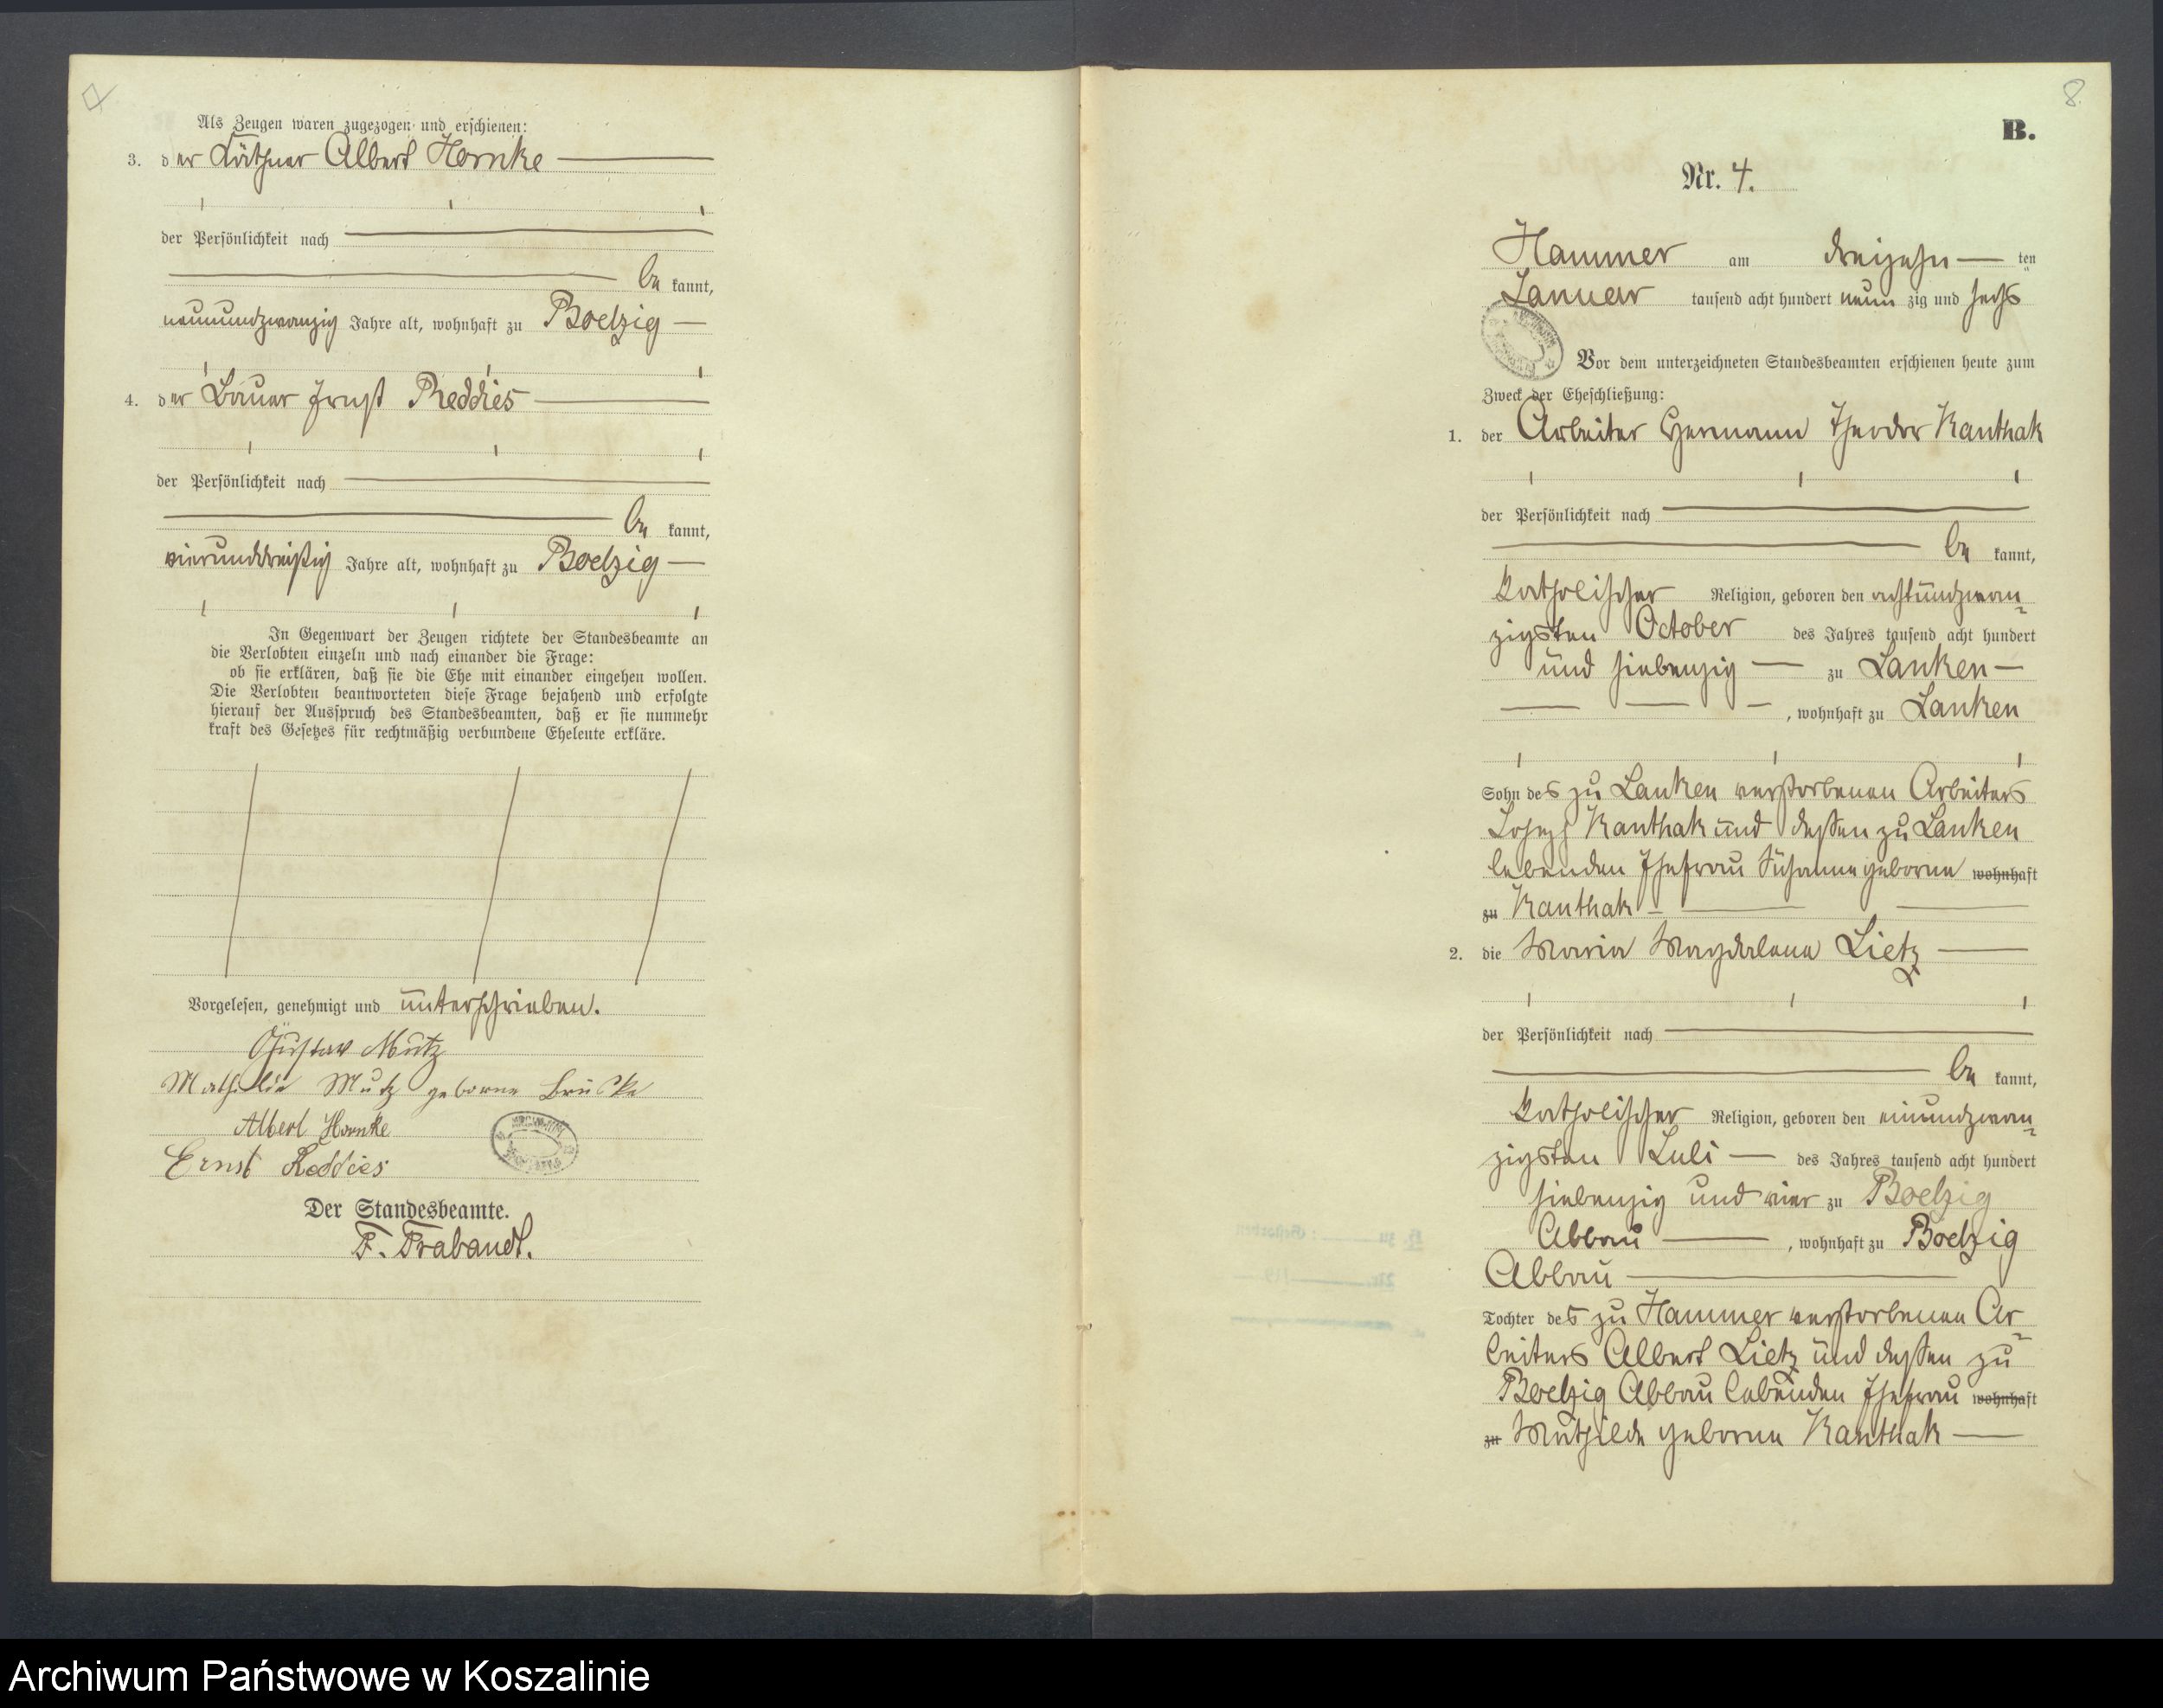 Als Zeugen waren zugezogen und erschienen:
3. der Käthner Albert Hornke
der Persönlichkeit nach
be kannt,
neunundzwanzig Jahre alt, wohnhaft zu Boelzig
4. der Bauer Ernst Reddies
der Persönlichkeit nach
be kannt,
vierunddreißig Jahre alt, wohnhaft zu Boelzig
In Gegenwart der Zeugen richtete der Standesbeamte an
die Verlobten einzeln und nach einander die Frage:
ob sie erklären, daß sie die Ehe mit einander eingehen wollen.
Die Verlobten beantworteten diese Frage bejahend und erfolgte
hierauf der Ausspruch des Standesbeamten, daß er sie nunmehr
kraft des Gesetzes für rechtmäßig verbundene Eheleute erkläre.
Vorgelesen, genehmigt und unterschrieben.
Gustav Mutz
Mathilde Mutz geborne
Albert Hornke
Ernst Reddies
Der Standesbeamte.
F. Trabandt.
8.
B.
Nr. 4.
Hammer am dreizehn ten
Januar tausend acht hundert neun zig und sechs
Vor dem unterzeichneten Standesbeamten erschienen heute zum
Zweck der Eheschließung:
1. der Arbeiter Hermann Theodor Kanthak
der Persönlichkeit nach
be kannt,
katholischer Religion, geboren den achtundzwan
zigsten October des Jahres tausend acht hundert
und siebenzig zu Lanken
, wohnhaft zu Lanken
Sohn des zu Lanken verstorbenen Arbeiters
Joseph Kanthak und dessen zu Lanken
lebenden Ehefrau Susanne geborne wohnhaft
zu Kanthak
2. die Maria Magdalena Lietz
der Persönlichkeit nach
be kannt,
katholischer Religion, geboren den einundzwan
zigsten Juli des Jahres tausend acht hundert
siebenzig und vier zu Boelzig
Abbau , wohnhaft zu Boelzig
Abbau
Tochter des zu Hammer verstorbenen Ar
beiters Albert Lietz und dessen zu
Boelzig Abbau lebenden Ehefrau wohnhaft
zu Mathilde geborne Kanthak
Archiwum Państwowe w Koszalinie